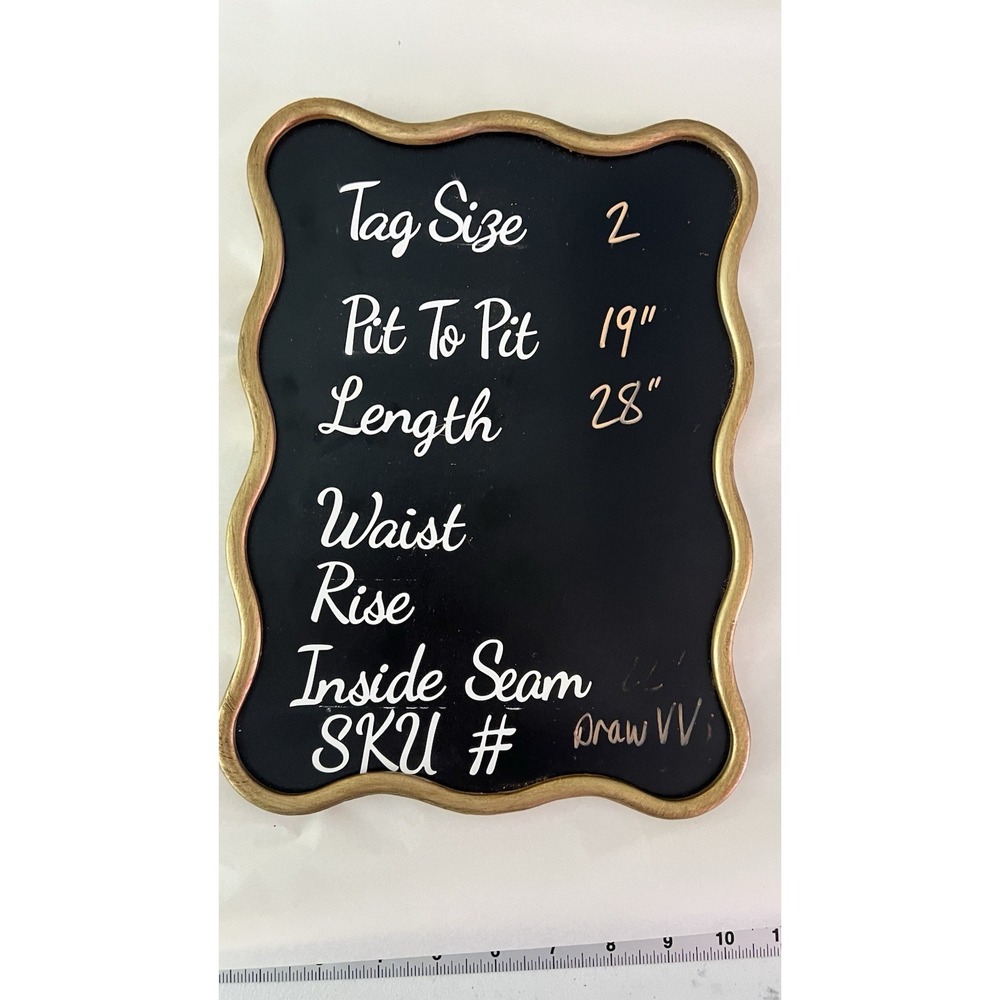 Tag Size 2
Pit To Pit 19"
Length 28"
Waist
Rise
Inside Seam
SKU # Draw VV
8 9 10